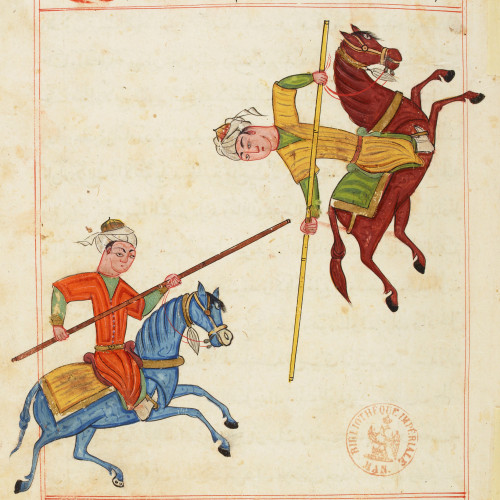 BIBLIOTHÈQUE IMPÉRIALE
MAN.